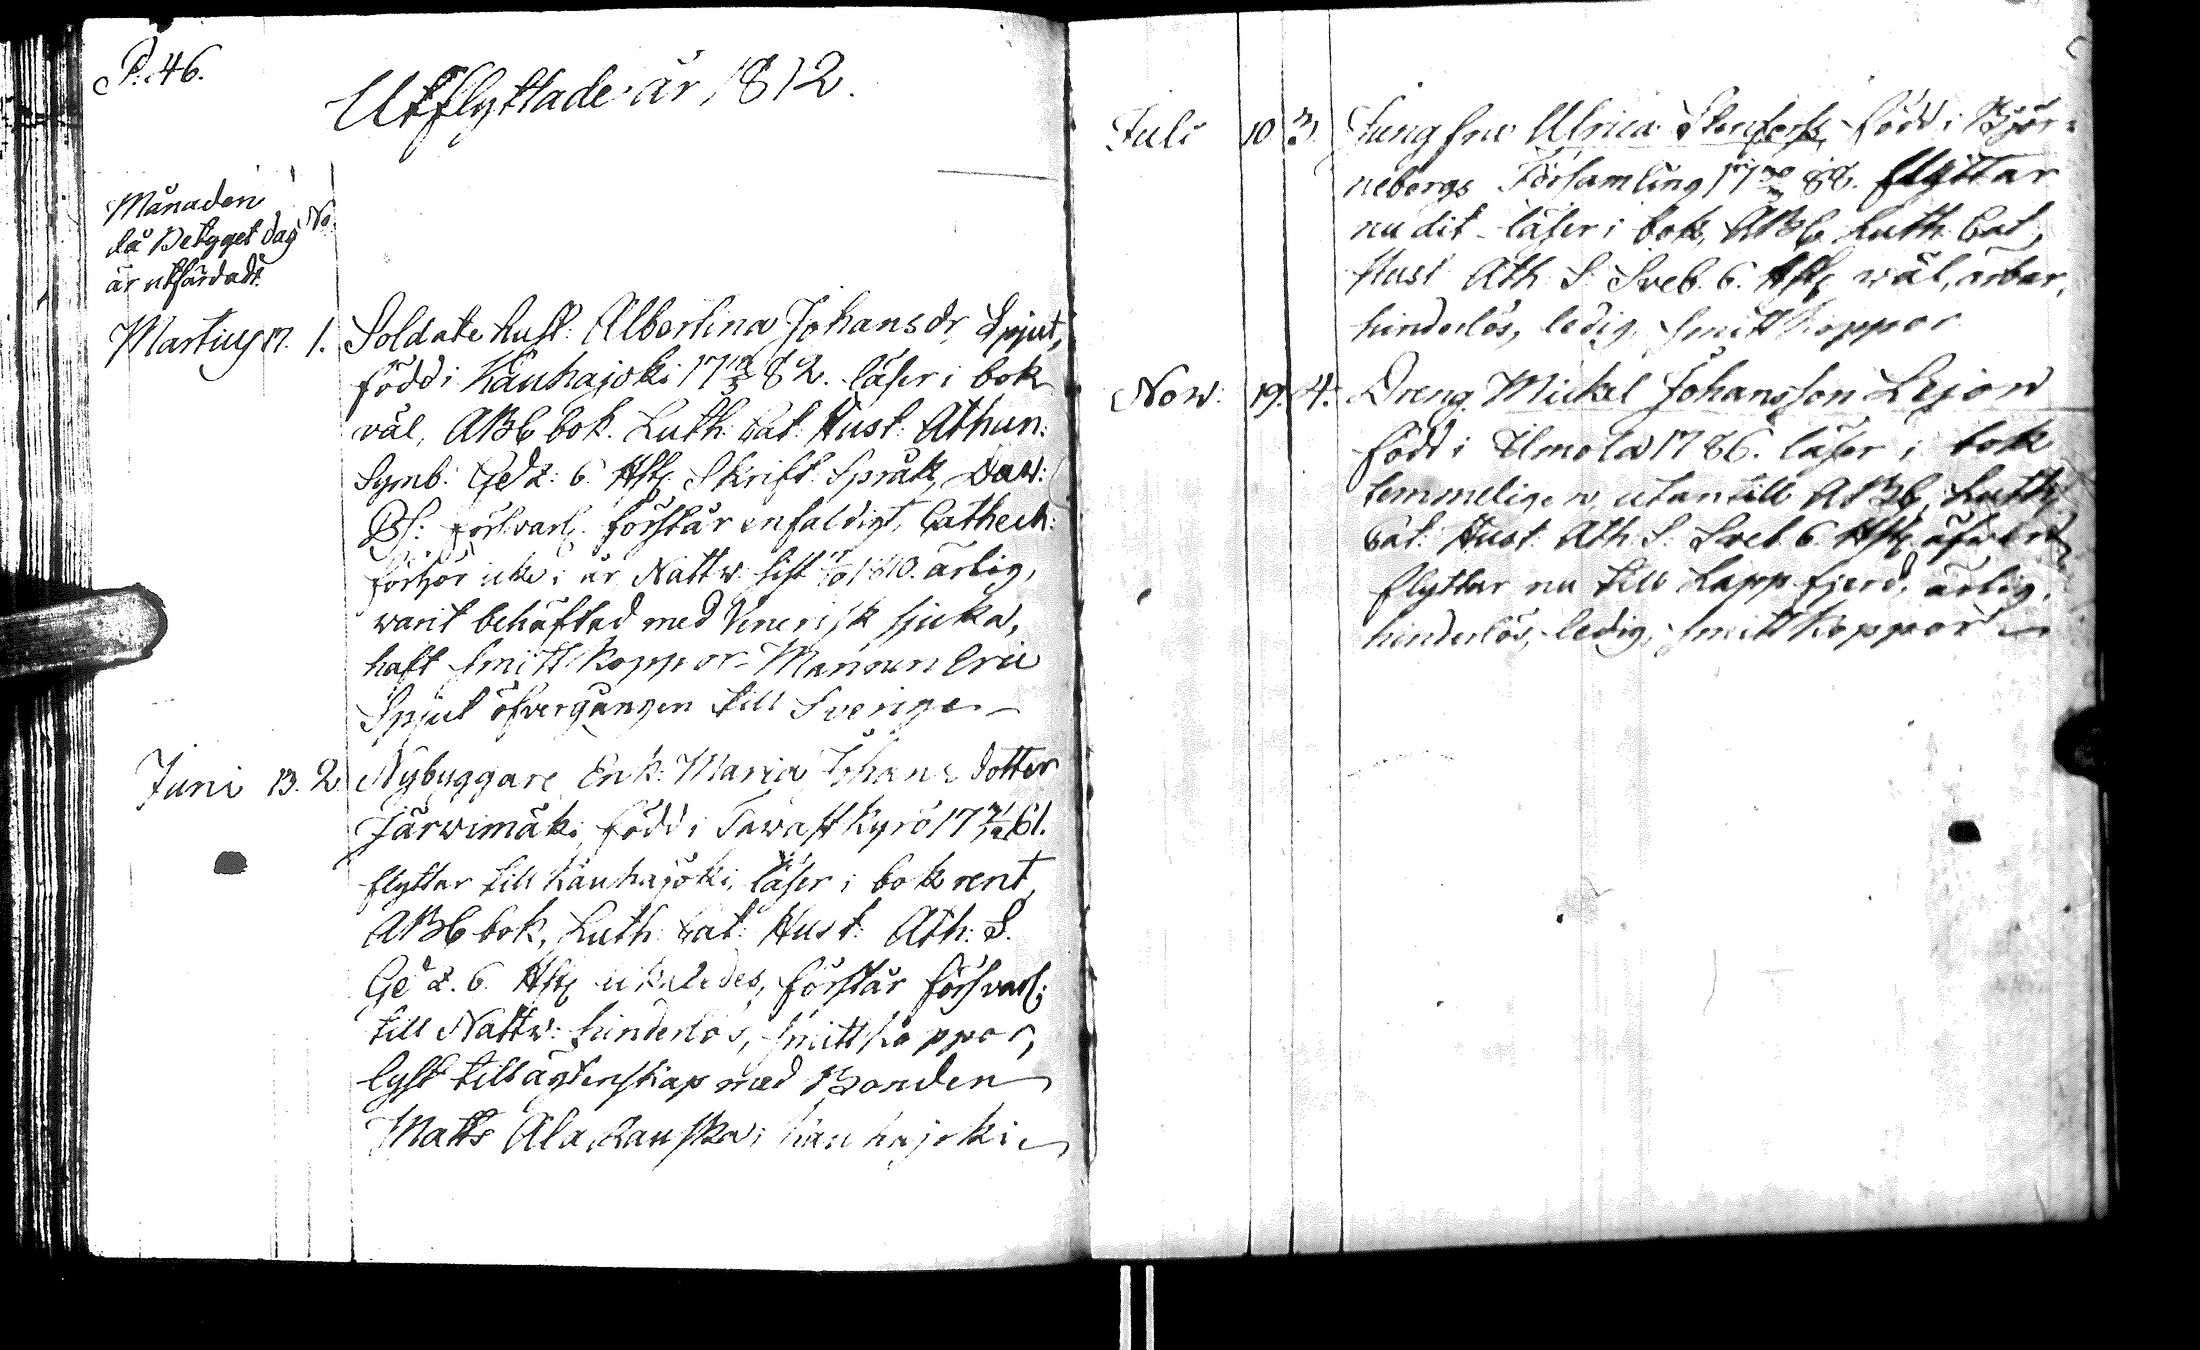 P. 46.
Utflyttade år 1812.
Månaden
då Betyget dag No
är utfärdadt.
Martius 17. 1. Soldate Hust: Albertina Johansdr Spjut,
född i Kauhajoki 17 82. läser i bok
väl, ABC bok. Luth: Cat: Hust: Athan:
Symb: Ged 2: 6. Hfl; Skrift. Språk, Dav:
Ps: försvarl. förstår enfaldigt, Catheck:
förhör i år Nattv: sist 1810. ärlig,
warit behäftad med Venerisk sjuka,
haft Smittkoppor. Mannen Eric
Spjut öfvergången till Sverige.
Juni 13. 2. Nybyggare Enk: Maria Johans dotter
Järwimäki, född i Tawastkyrö 17 61.
flyttar till Kauhajoki, läser i bok rent,
ABC bok, Luth: Cat: Hust: Ath: S.
Ged 2. 6. Hfl; likaledes, förstår försvarl;
till Nattw: hinderlös, smittkoppor,
lyst till ägtenskap med Bonden
Matts Ala i Kauhajoki
Juli 10 3. Jungfru Ulrica född i Björ=
neborgs Församling 17 86. flyttar
nu dit. läser i bok, ABC Luth Cat,
Hust Ath S. Sveb. 6. Hfl; wäl, ärbar,
hinderlös, ledig, smittkoppor
Now: 19. 4. Dreng Mickel Johansson Lejon
född i Ilmola 1786. läser i bok
temmeligen, utantill ABC, Luth;
Cat: Hust: Ath: S. Sveb 6. Hfl;
flyttar nu till Lappfjerd, ärlig,
hinderlös, ledig, smittkoppor